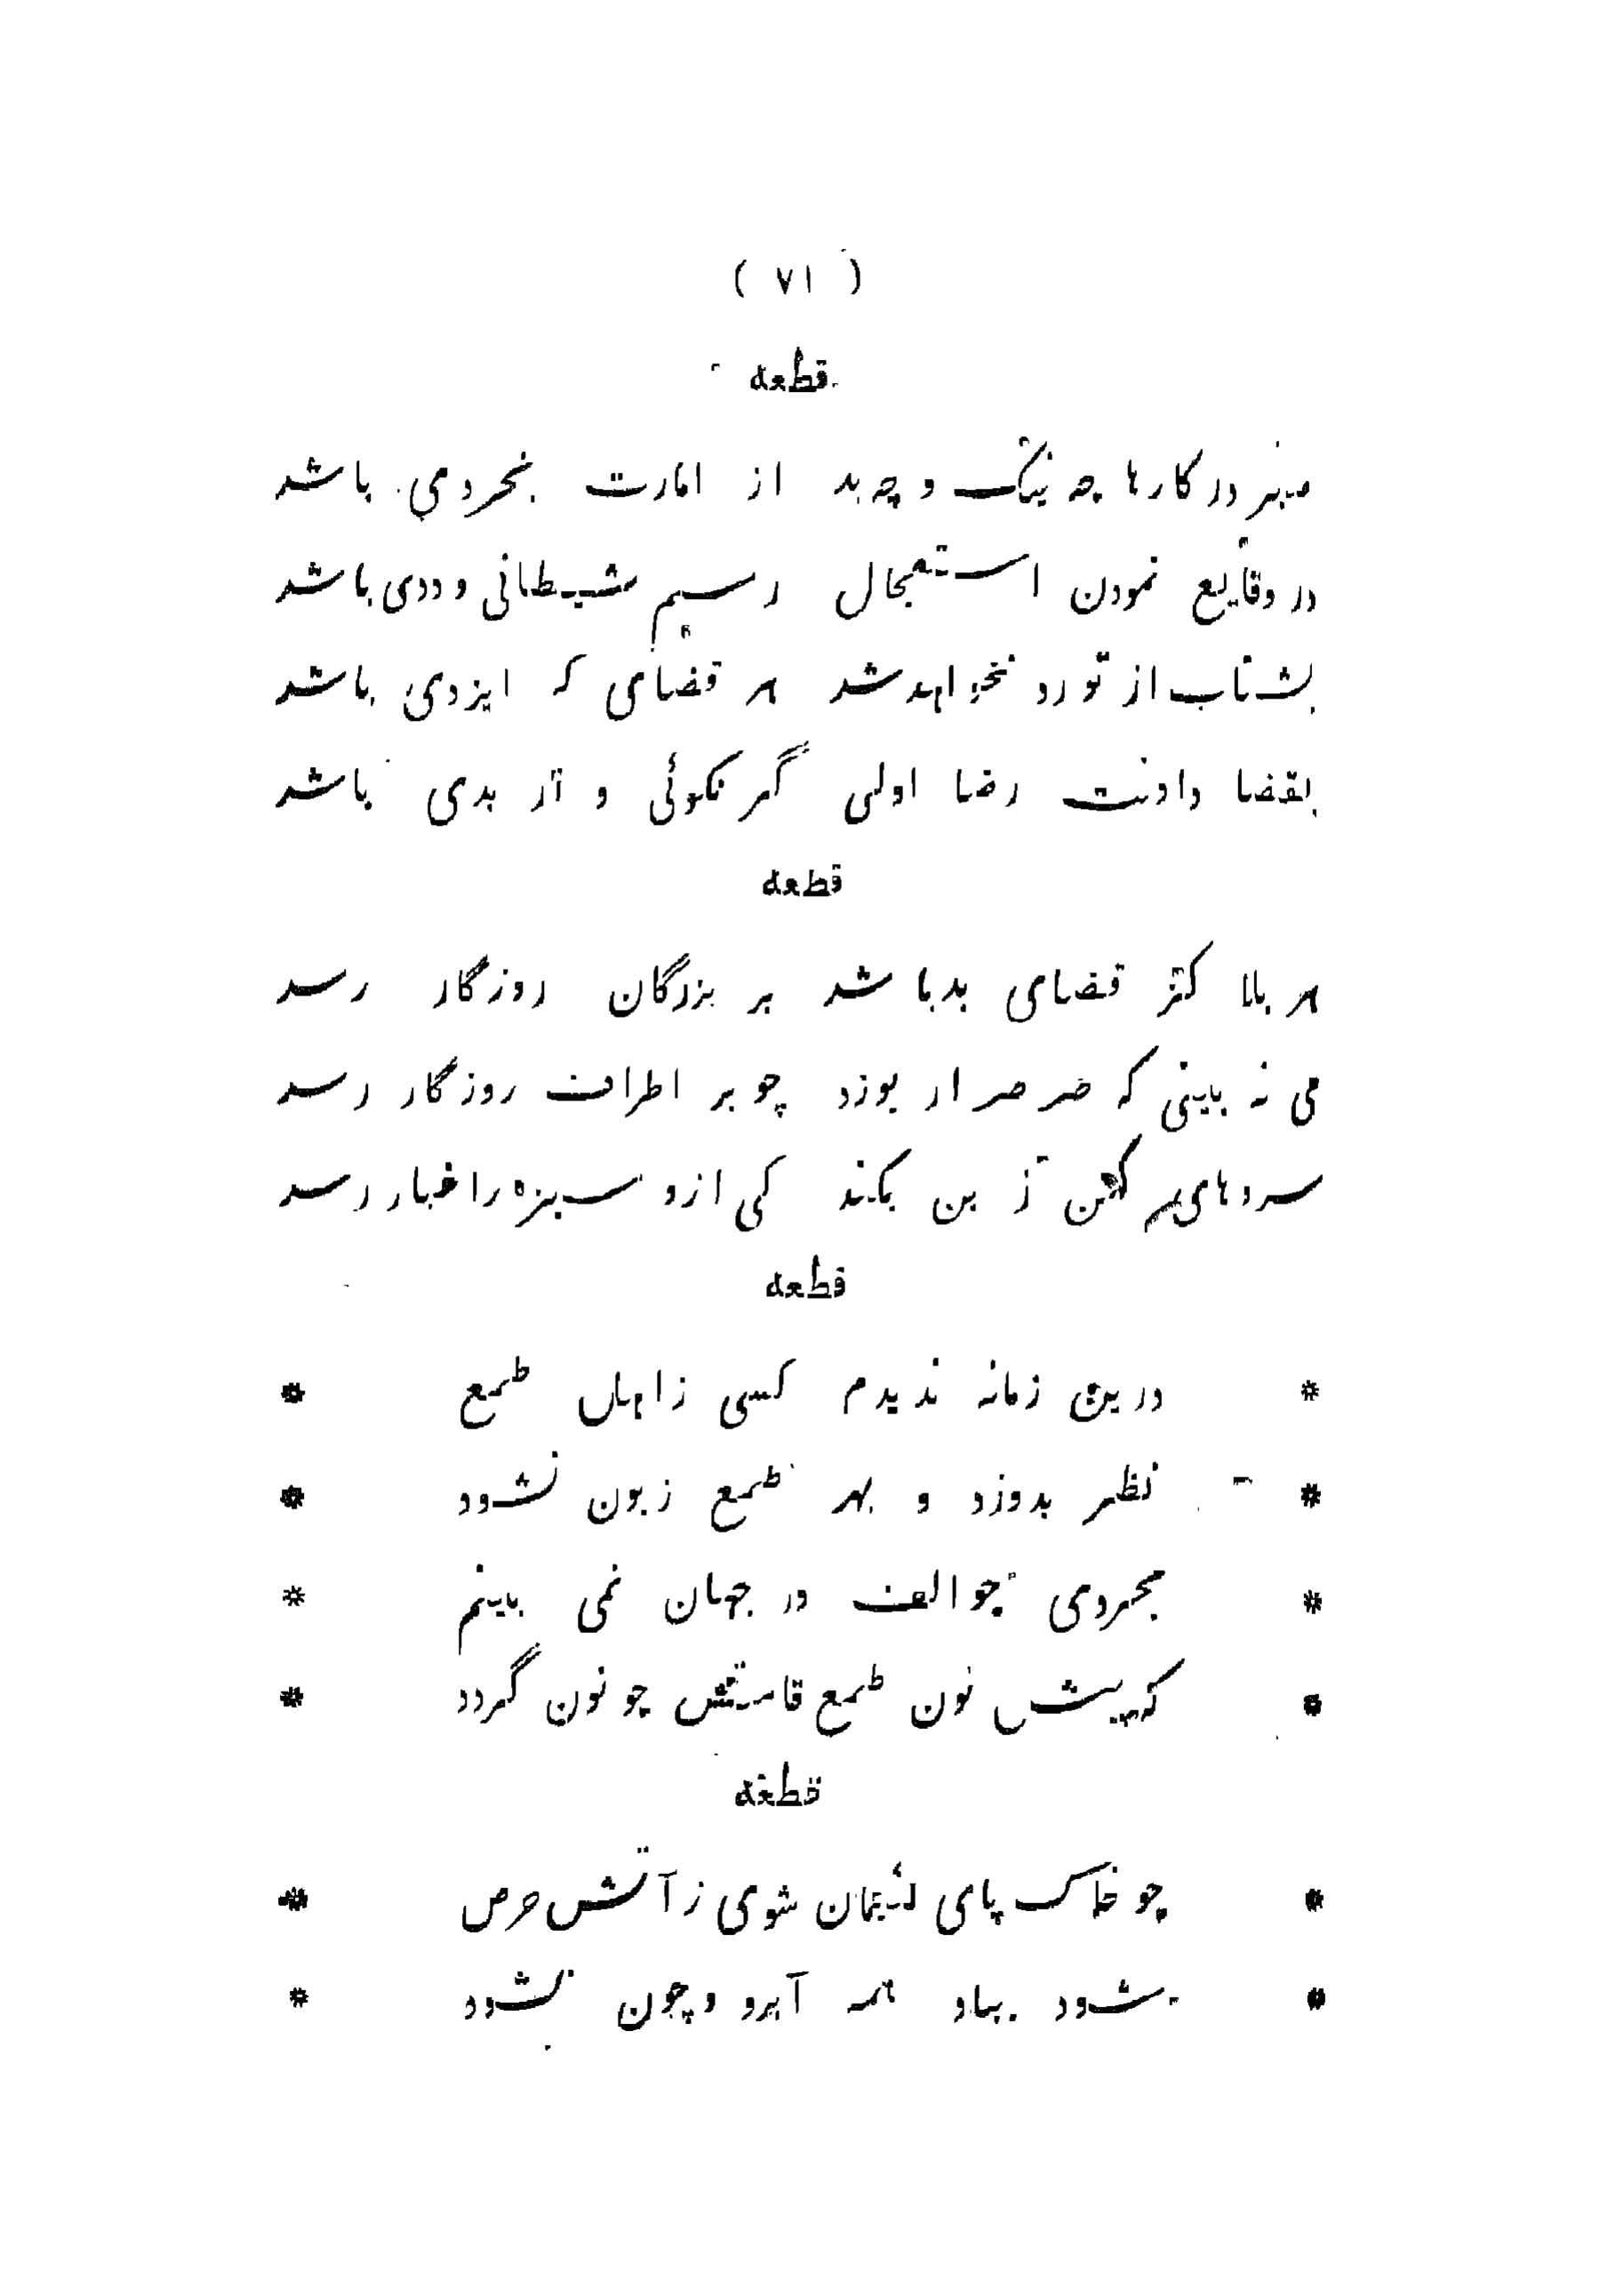 ( ۷۱ )
قطعه
صبر در کارها چه نیک و چه بد از امارت بخردی باشد
در وقایع نمودن استعجال رسم شیطانی و ددی باشد
بشتاب از تو رد نخواهد شد هر قضای که ایزدی باشد
بقضا دادنت رضا اولی گر نکوئی و آر بدی باشد
قطعه
هر بلا کز قضای بد باشد بر بزرگان روزگار رسد
می نه بینی که صرصر ار بوزد چو بر اطراف روزگار رسد
سروهای کهن ز بن بکند کی ازو سبزه را غبار رسد
قطعه
* درین زمانه ندیدم کسی ز اهل طمع *
* نظر بدوزد و بهر طمع زبون نشود *
* مجردی چو الف در جهان نمی بینم *
* که پیش نون طمع قامتش چو نون گردد *
قطعه
* چو خاک پای لئیمان شوی ز آتش حرص *
* شود بباد همه آبرو و چون نشود *